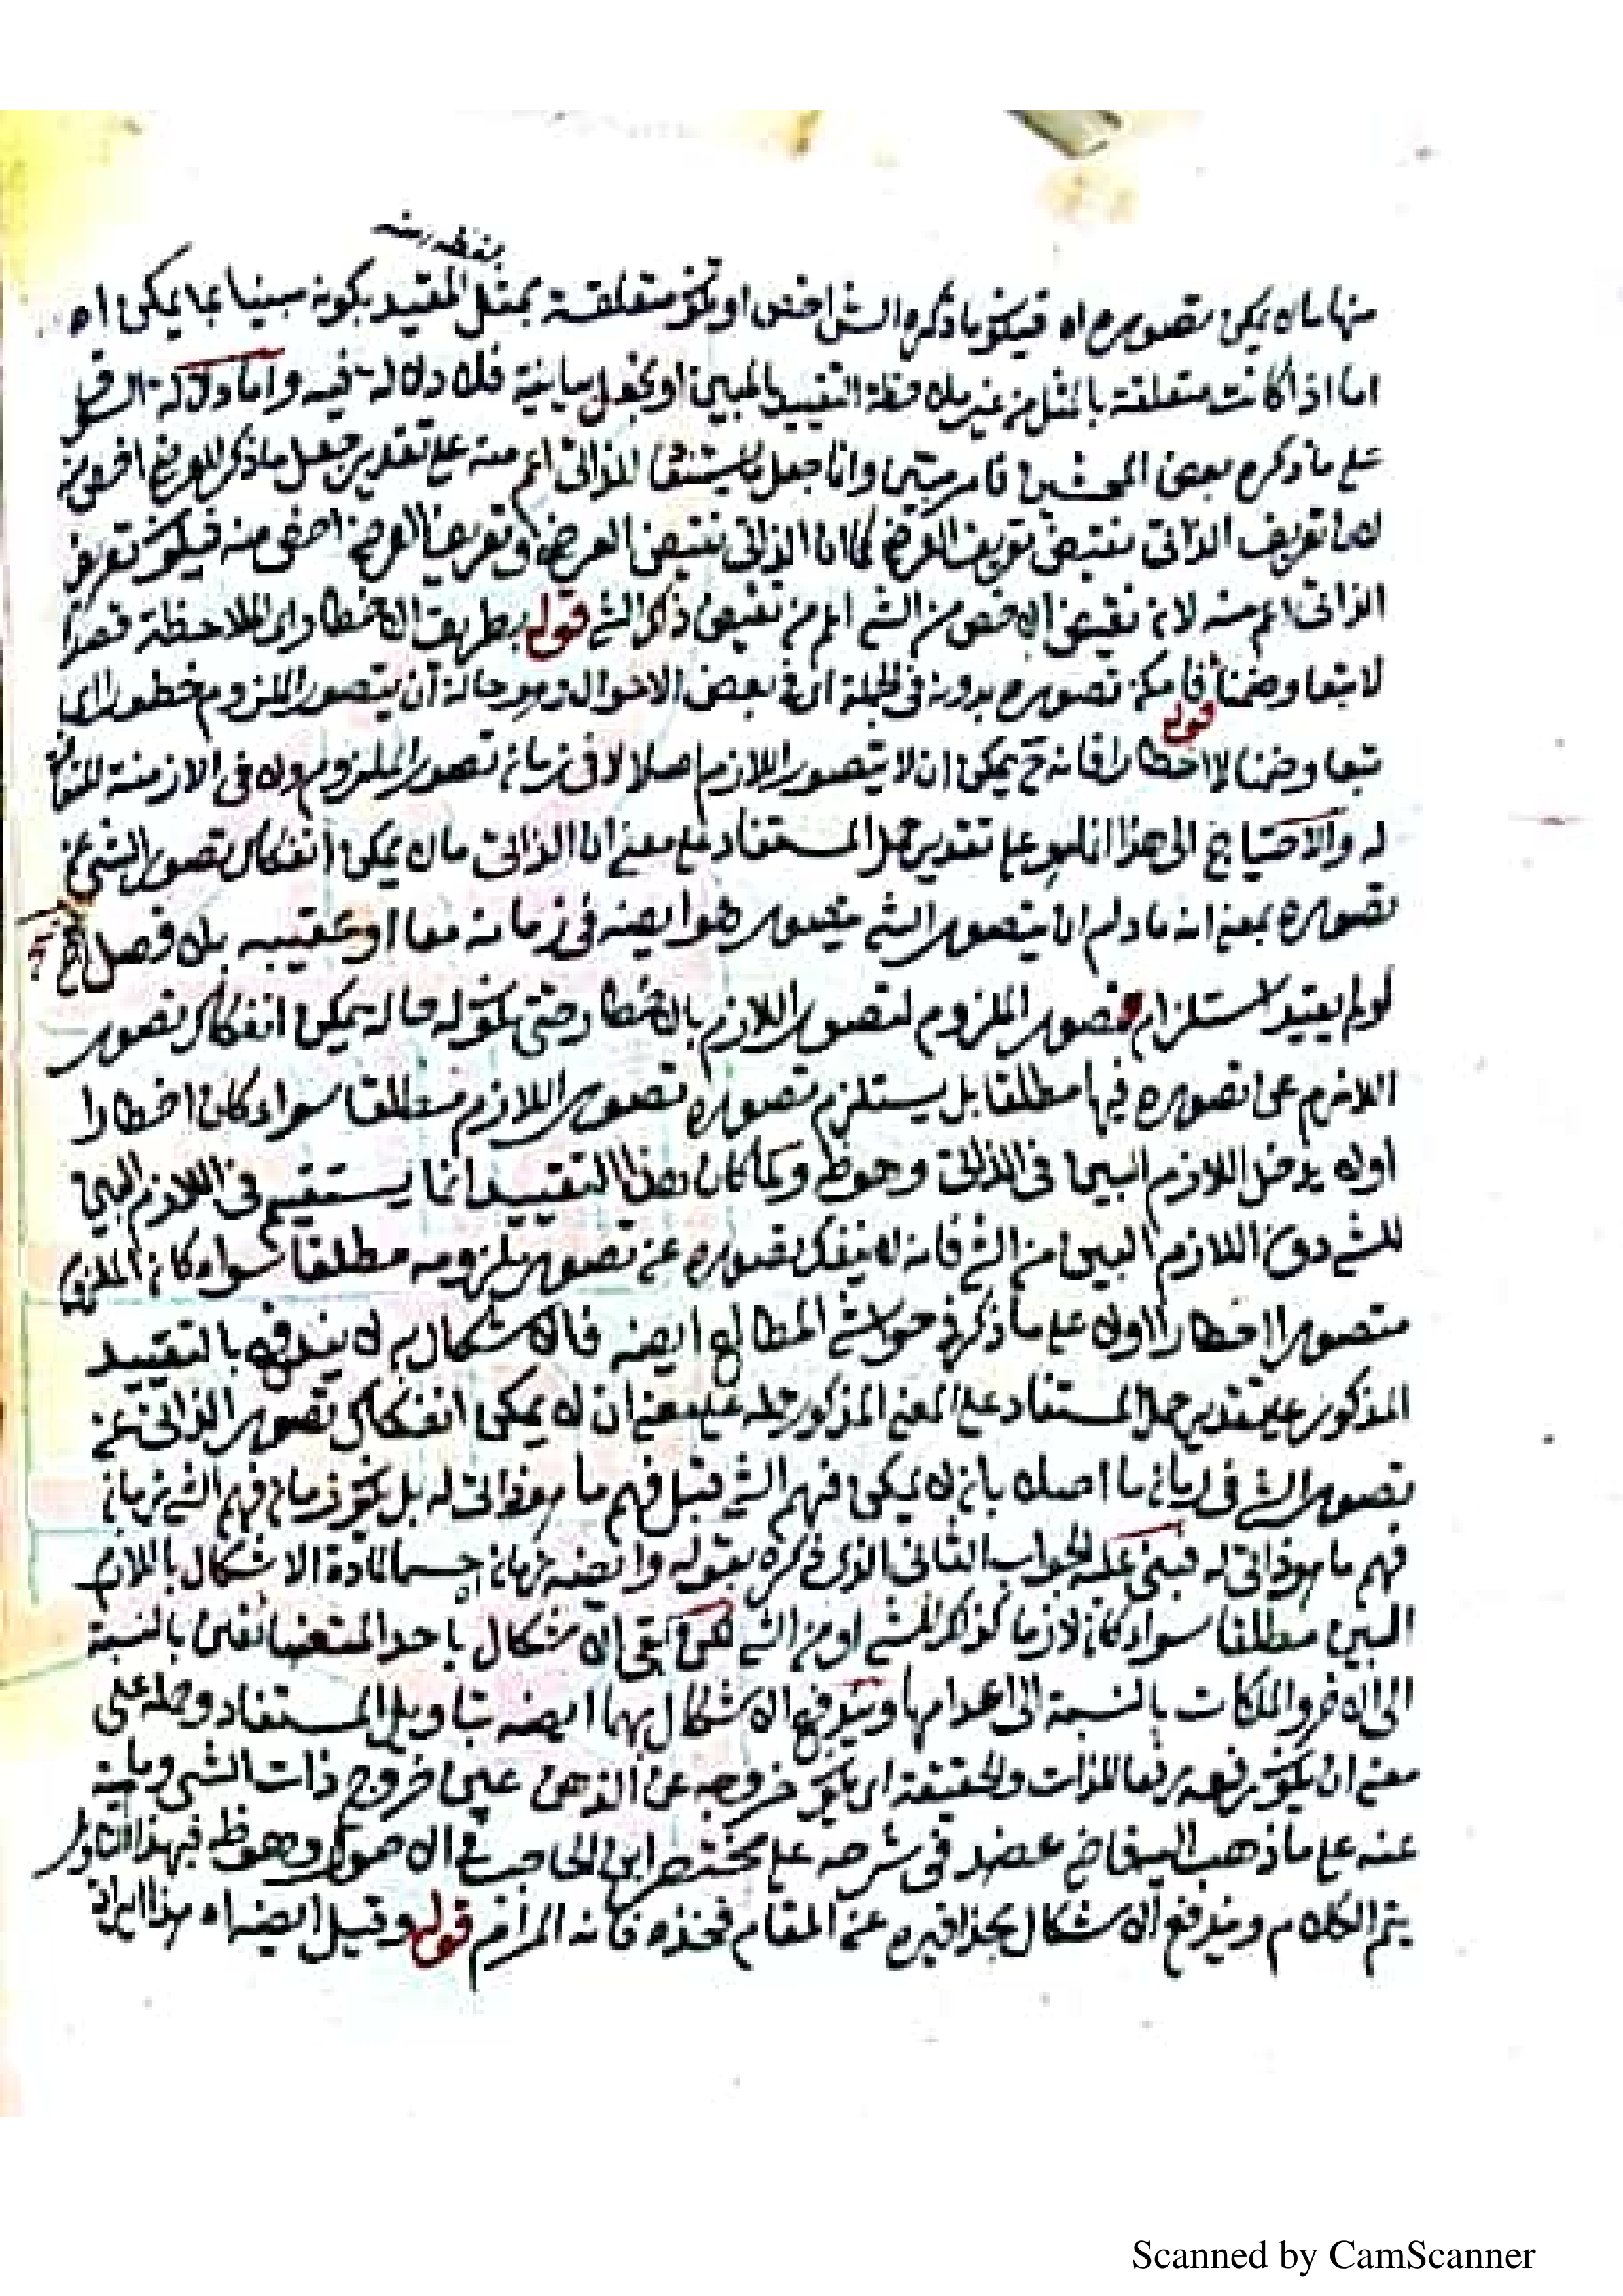 بفظه منه
منها ما لا يمكن تصوره اه فيكون ما ذكره الش اخص او تكون متعلقة بمثل المقيد بكونه مبينا بما يمكن اه
اما اذا كانت متعلقة بالمثل من غير ملاحظة التقييد بالمبين او يجعل بيانية فلا دلالة فيه واما دلالة
على ما ذكره بعض المحشين وانا جعل للذاتى اعم منه على تقدير جعل ما ذكر للعرضى اخص منه
لان تعريف الذاتى نقيض تعريف العرضى كما ان الذاتى نقيض العرضى وتعريف العرضى اخص منه فيكون تعريف
الذاتى اعم منه لانه نقيض الاخص من الشئ اعم من نقيض ذكر الشئ قوله بطريق الاخطار اى الملاحظة قصدا
لا تبعا وضمنا فامكن تصوره بدونه فى الجملة اى فى بعض الاحوال وهو حالة ان يتصور الملزوم خطور اى
قوله
تبعا وضمنا لا اخطارا فانه ح يمكن ان لا يتصور اللازم اصلا لا فى زمان تصور الملزوم ولا فى الازمنة
له والاحتياج الى هذا انما هو على تقدير حمل المستفاد على معنى ان الذاتى ما لا يمكن انفكاك تصور الشئ عن
تصوره بمعنى انه ما دام ان يتصور الشئ يتصور هو ايضه فى زمانه معا او عقيبه بلا فصل
لو لم يقيد استلزام تصور الملزوم لتصور اللازم بالاخطار حتى تكون له حالة يمكن انفكاك تصور
اللازم عن تصوره فيها مطلقا بل يستلزم تصوره تصور اللازم مطلقا سواء كان اخطارا
اولا يدخل اللازم البين فى الذاتى وهو ظ ولما كان هذا التقييد انما يستقيم فى اللازم البين
للشئ دون اللازم البين من الشئ فانه لا ينفك تصوره عن تصور ملزومه مطلقا سواء كان الملزوم
متصورا اخطارا اولا على ما ذكر فى حواشى المطالع ايضه فالاشكال به لا يندفع بالتقييد
المذكور على تقدير حمل المستفاد على المعنى المذكور حمله على معنى ان لا يمكن انفكاك تصور الذاتى عن
تصور الشئ فى زمان ما اصلا بان لا يمكن فهم الشئ قبل فهم ما هو ذاتى له بل يكون زمان فهم الشئ زمان
فهم ما هو ذاتى له فبنى عليه الجواب الثانى الذى ذكره بقوله وايضه زمان حسما لمادة الاشكال باللازم
البين مطلقا سواء كان لازما للشئ او من الشئ لكن بقى الاشكال باحد المتضائفين بالنسبة
الى الاخر والملكات بالنسبة الى اعدامها ويندفع الاشكال بهما ايضه بتاويل المستفاد وحمله على
معنى ان يكون رفعه رفعا للذات والحقيقة اى يكون خروجه عن الذهن عين خروج ذات الشئ
عنه على ما ذهب اليه القاضى عضد فى شرحه على مختصر ابن الحاجب فى الاصول وهو ظ فبهذا التاويل
يتم الكلام ويندفع الاشكال بحذافيره عن المقام فخذه فانه المرام قوله وقيل ايضه اه هذا
Scanned by CamScanner